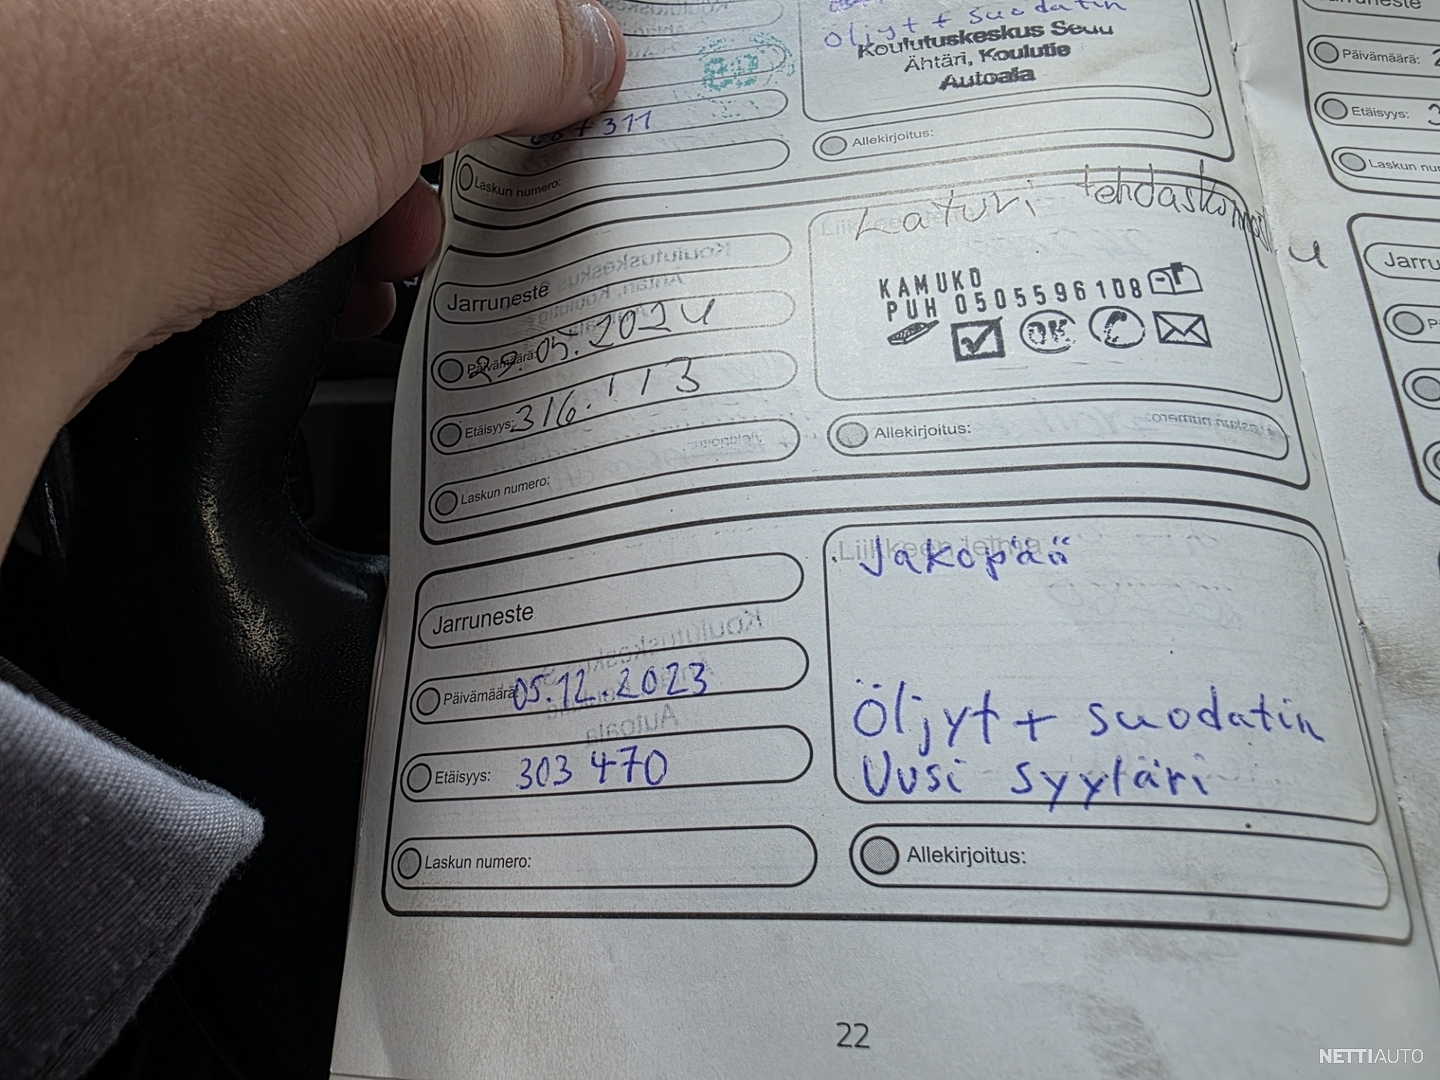 Öljyt + suodatin
Koulutuskeskus Seuu
Ähtäri, Koulutie
Autoala
311
Laskun numero:
Allekirjoitus:
Laturi tehdaskorjattu
Jarruneste
KAMUKO
PUH 0505596108
OK
Päivämäärä: 29.05.2024
Etäisyys: 316.113
Laskun numero:
Allekirjoitus:
Liikkeen leima
Jakopää
Jarruneste
Päivämäärä: 05.12.2023
Öljyt + suodatin
Etäisyys: 303 470
Uusi syyläri
Laskun numero:
Allekirjoitus:
22
Jarruneste
Päivämäärä:
Etäisyys:
Laskun nu
Jarru
NETTIAUTO